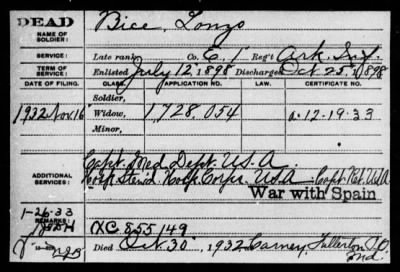 DEAD
NAME OF SOLDIER: Bice, Lonzo
SERVICE: Late rank, Co. E, 1 Reg't Ark Inf.
TERM OF SERVICE: Enlisted July 12, 1898 Discharged Oct. 25, 1898
DATE OF FILING. CLASS. APPLICATION NO. CERTIFICATE NO.
Soldier,
1932 Nov 16 Widow, 1728.054 a. 12-19-33
Minor,
ADDITIONAL SERVICES: Capt. Med. Dept. U.S.A.
Hosp. Corps. U.S.A. Capt. Ret. USA
War with Spain
1-26-33
REMARKS: XC 855149
Died Oct 30, 1932 Carney, Fullerton P.O.
Md.